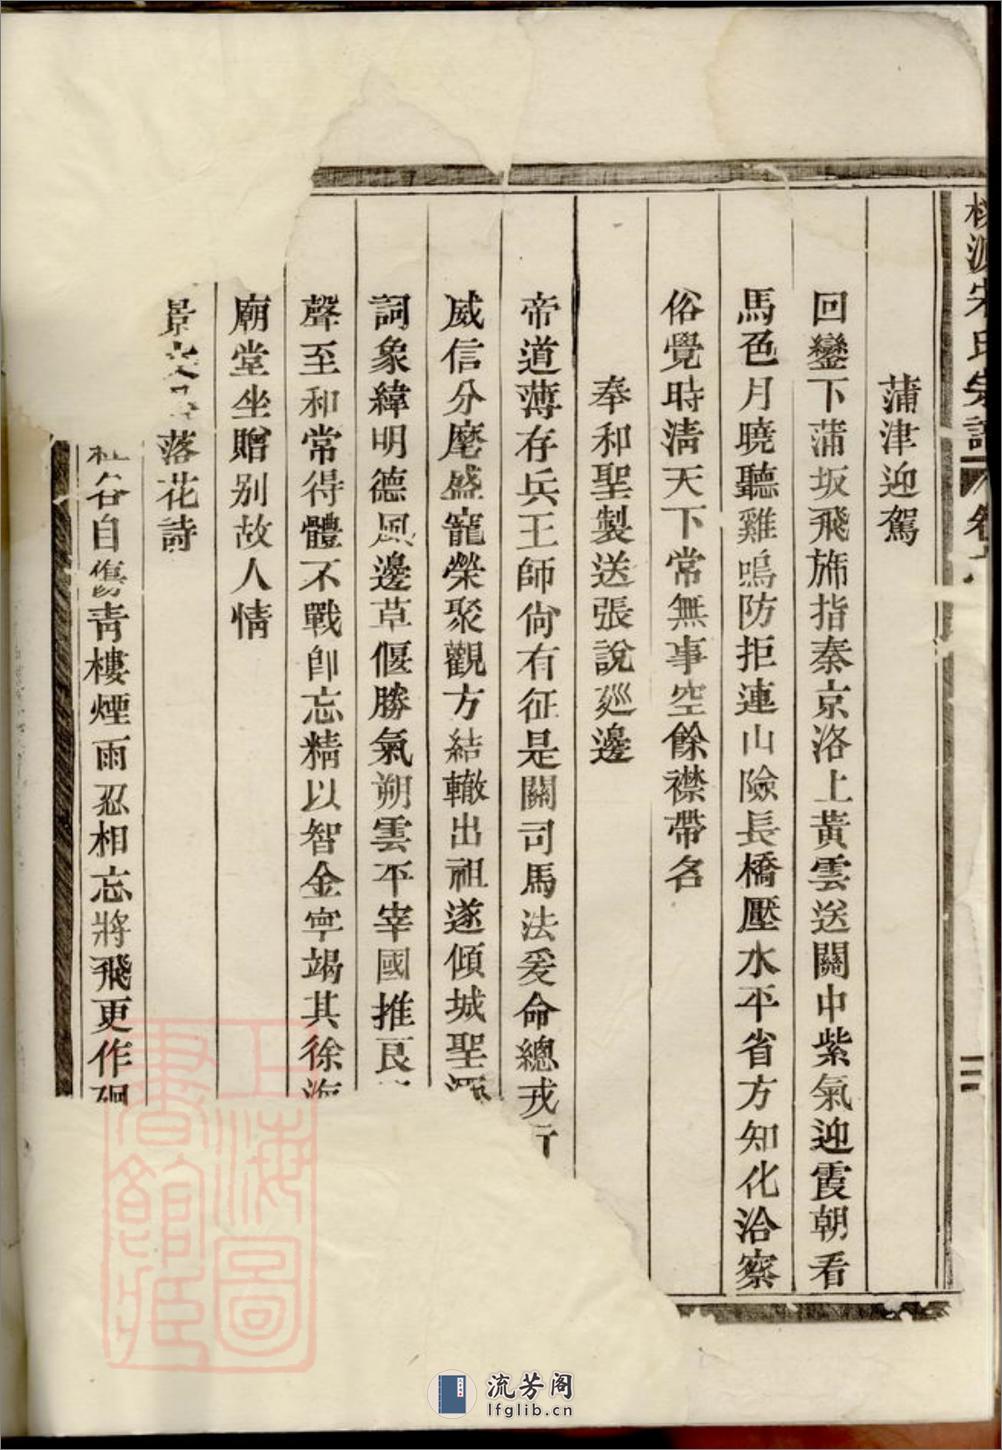 源宋氏宗譜 卷
蒲津迎駕
回鑾下蒲坂飛旆指秦京洛上黃雲送關中紫氣迎霞朝看
馬色月曉聽雞鳴防拒連山險長橋壓水平省方知化洽察
俗覺時淸天下常無事空餘襟帶名
奉和聖製送張說廵邊
帝道薄存兵王師尙有征是關司馬法爰命總戎行
威信分麾盛寵榮聚觀方結轍出祖遂傾城聖酒
詞象緯明德風邊草偃勝氣朔雲平宰國推良
聲至和常得體不戰卽忘精以智金寧竭其徐海
廟堂坐贈别故人情
景文 落花詩
自傷靑樓煙雨忍相忘將飛更作
上海圖書館藏
流芳阁
lfglib.cn